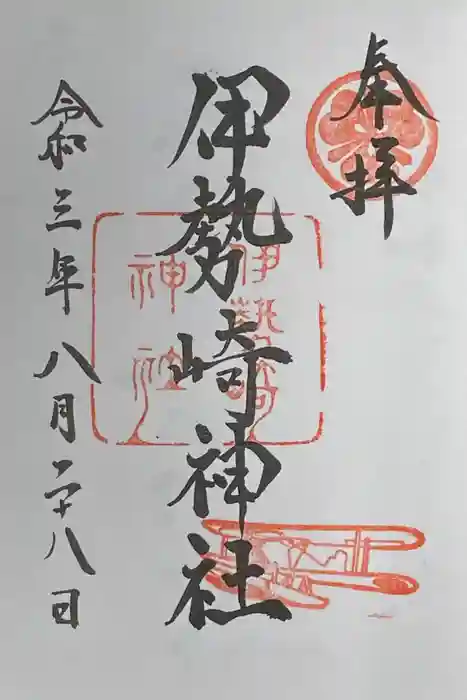 奉拝
伊勢崎神社
伊勢崎
神社
令和三年八月二十八日